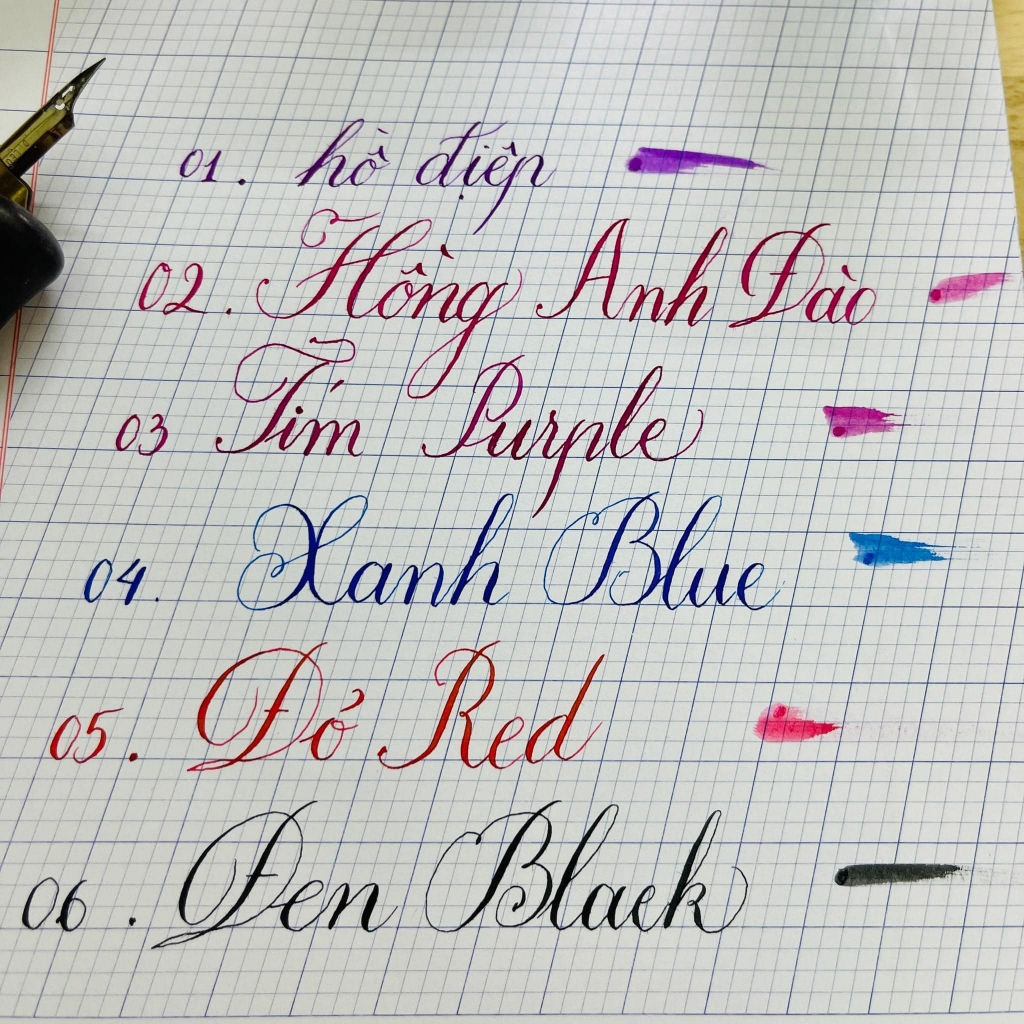 01. hồ điệp
02. Hồng Anh Đào
03 Tím Purple
04. Xanh Blue
05. Đỏ Red
06. Đen Black